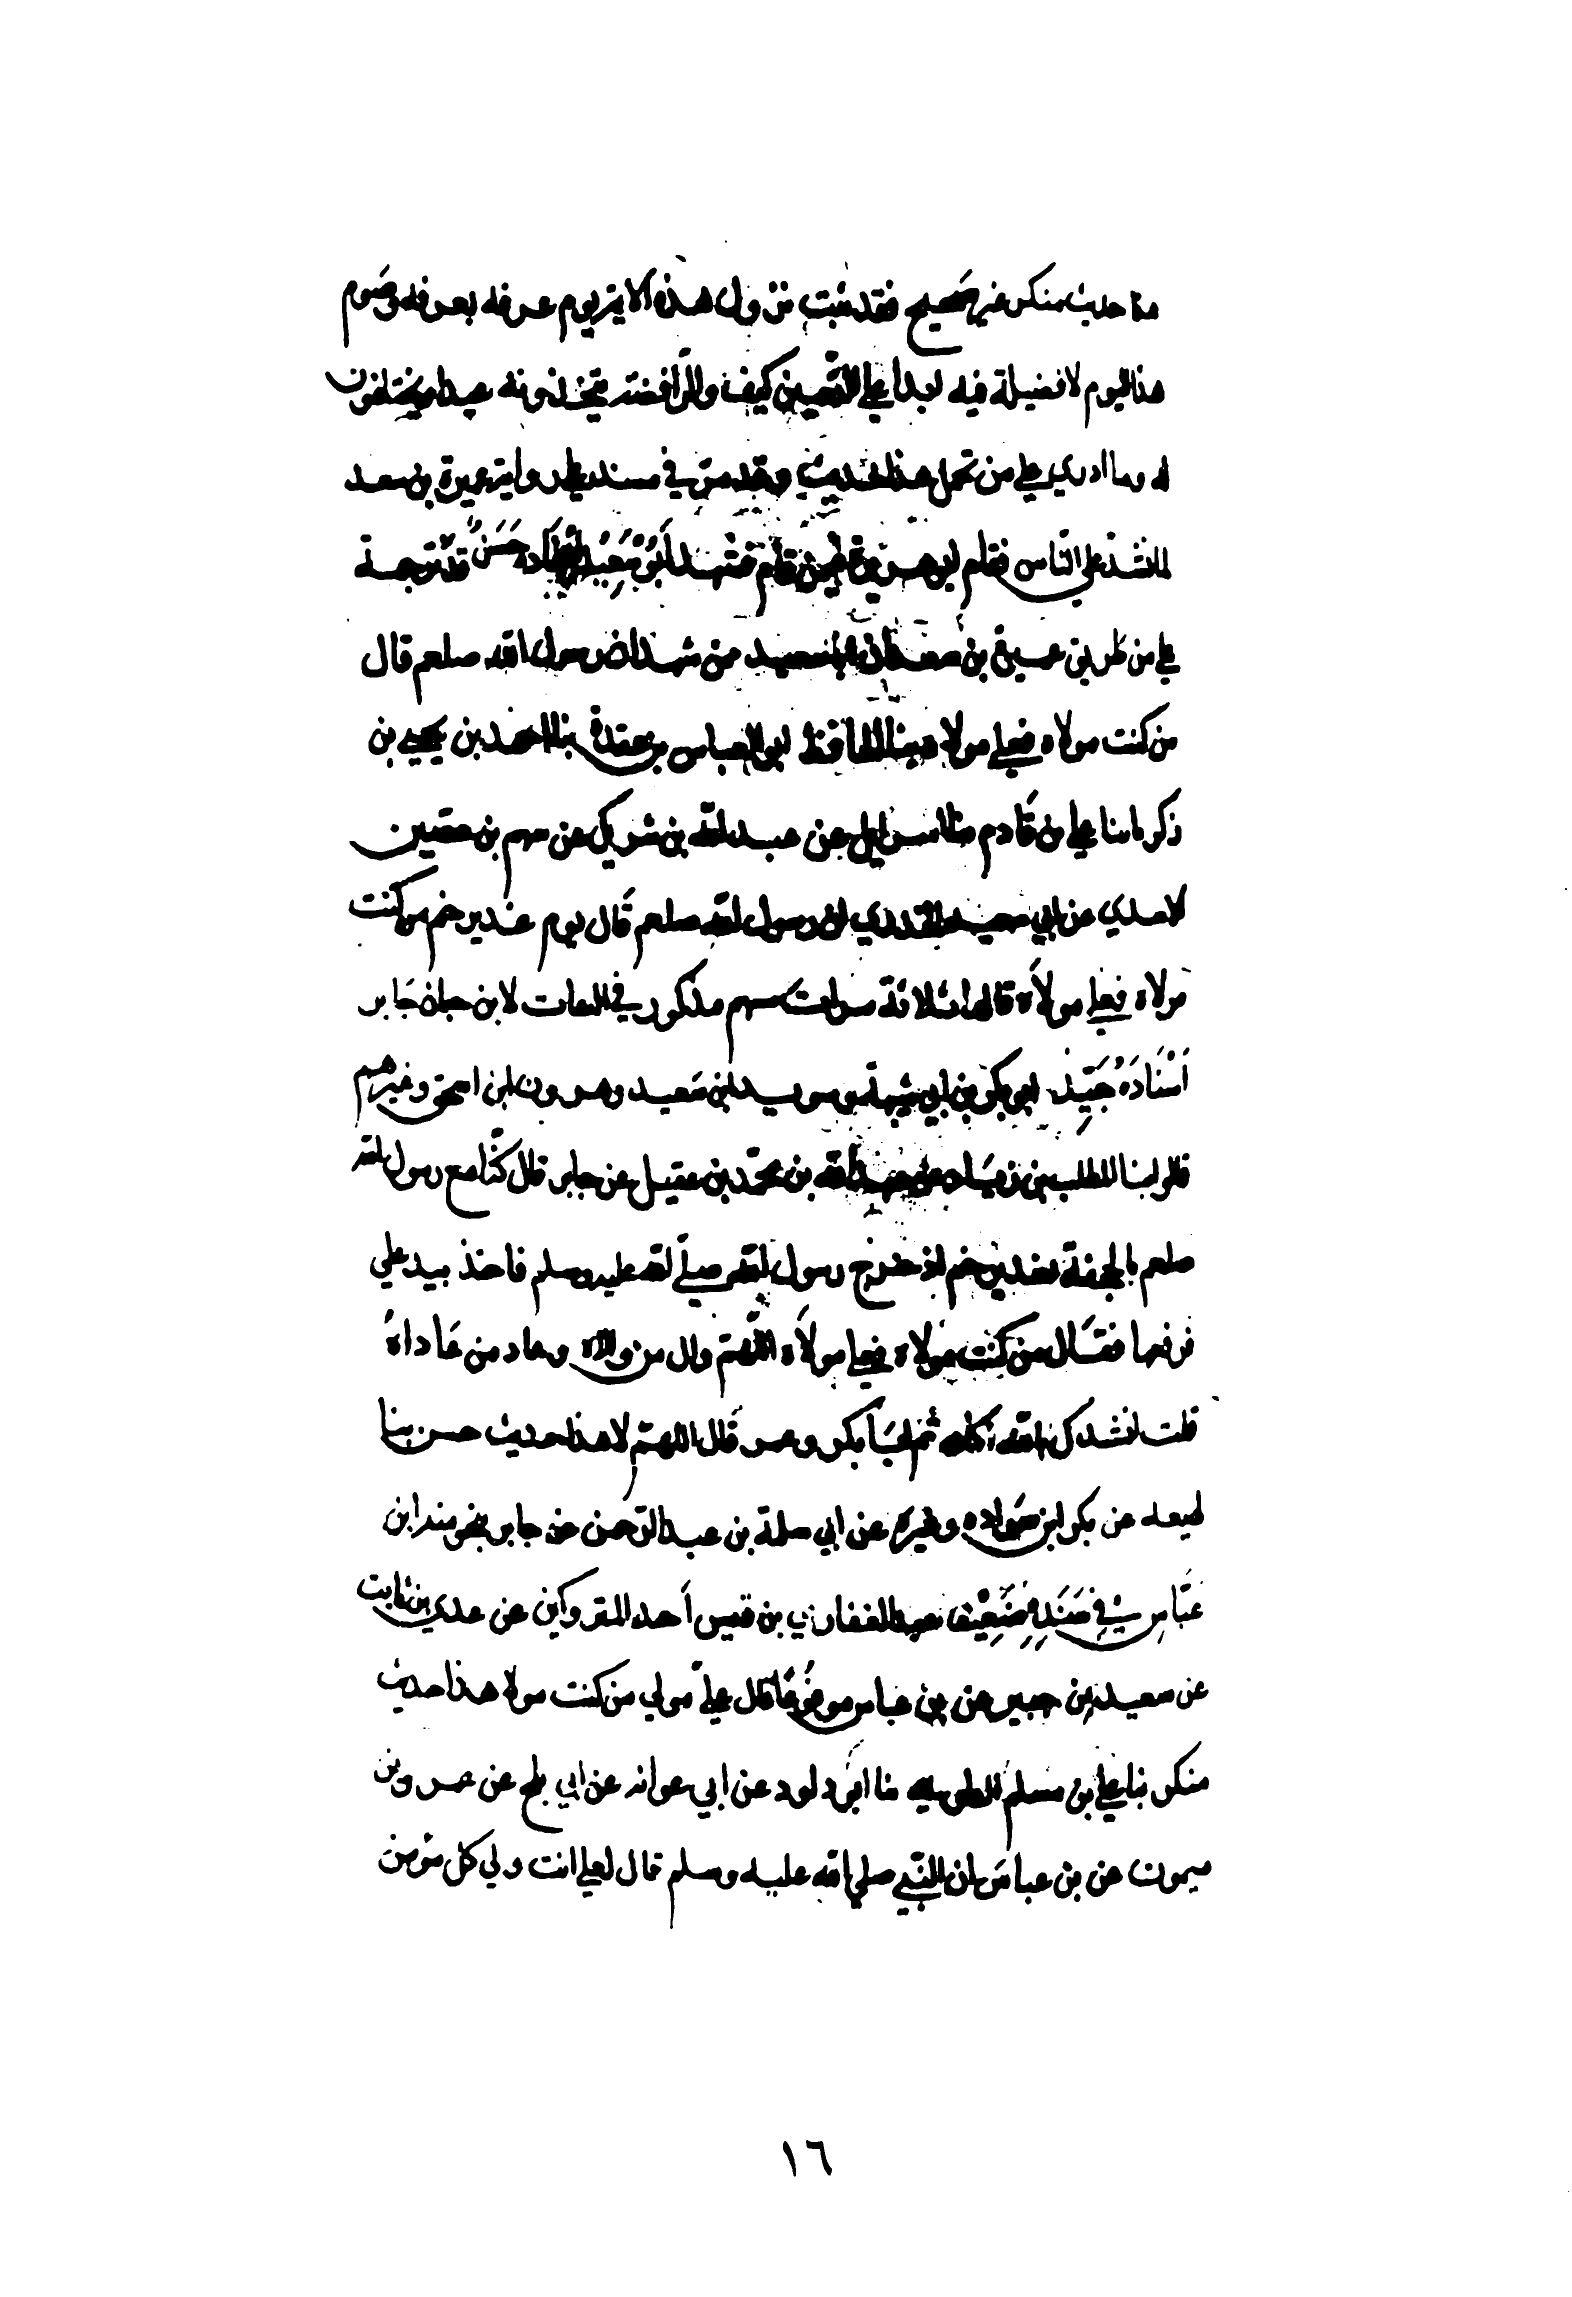 هذا حديث منكر غير صحيح فقد ثبت نزول هذه الاية يوم عرفه بعرفه وصوم
هذا اليوم لا فضيلة فيه ابدا علي التعيين كيف والرافضة يتخذونه عيدا ويختلفون
له وما ادري علي من تحمل هذا الحديث وقد مر في مسند علي رواية عميرة بن سعد
لما نشد علي الناس فقام ابو هريرة فيمن قام فشهد ابو سعيد اسناده حسن ترجمة
علي من طريق عميرة بن سعد ان ابا سعيد ممن شهد ان رسول الله صلعم قال
من كنت مولاه فعلي مولاه الحافظ ابو العباس بن عقدة بنا احمد بن يحيي بن
زكريا بنا علي بن قادم بنا اسرايل عن عبد الله بن شريك عن سهم بن حصين
لاسدي عن ابي سعيد الخدري ان رسول الله صلعم قال يوم غدير خم من كنت
مولاه فعلي مولاه قالها ثلاثة مرات سهم مذكور في الثقات لابن حبان جابر
اسناده جيد ابو بكر بن ابي شيبة وسويد بن سعيد وهرون ابن اسحق وغيرهم
قالوا بنا المطلب بن زياد عن عبد الله بن محمد بن عقيل عن جابر قال كنا مع رسول الله
صلعم بالجحفة بغدير خم اذ خرج رسول الله صلي الله عليه وسلم فاخذ بيد علي
فرفعها فقال من كنت مولاه فعلي مولاه اللهم وال من والاه وعاد من عاداه
قلت انشدك بالله اكان ثم ابا بكر وعمر قال اللهم لا هذا حديث حسن بنا
لهيعه عن بكر ابن سواده وغيره عن ابي سلمة بن عبد الرحمن عن جابر بنحو منه ابن
عباس في سنده ضعيف عبد الغفار بن قيس أحد المتروكين عن عدي بن ثابت
عن سعيد بن جبير عن بن عباس مرفوعا قال علي مولي من كنت مولاه هذا حديث
منكر بنا علي بن مسلم الطوسي بنا ابو داود عن ابي عوانه عن ابي بلج عن عمرو بن
ميمون عن بن عباس ان النبي صلي الله عليه وسلم قال لعلي انت ولي كل مؤمن
١٦